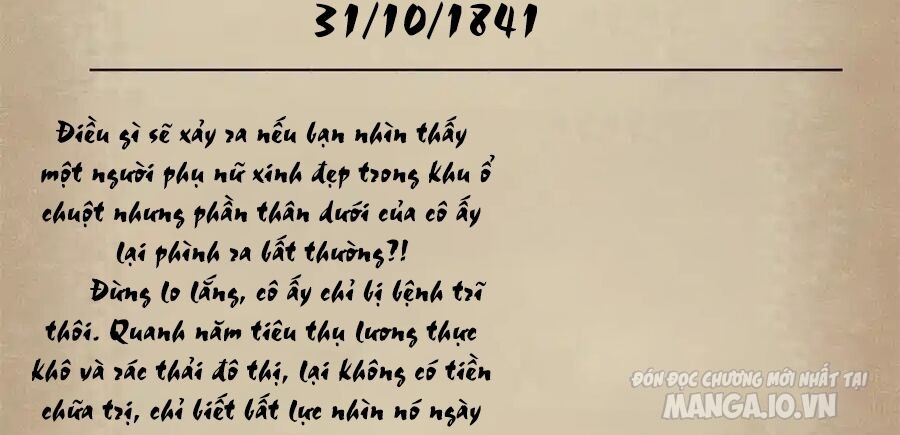 31/10/1841
Điều gì sẽ xảy ra nếu bạn nhìn thấy
một người phụ nữ xinh đẹp trong khu ổ
chuột nhưng phần thân dưới của cô ấy
lại phình ra bất thường?!
Đừng lo lắng, cô ấy chỉ bị bệnh trĩ
thôi. Quanh năm tiêu thụ lương thực
khô và rác thải đô thị, lại không có tiền
chữa trị, chỉ biết bất lực nhìn nó ngày
ĐÓN ĐỌC CHƯƠNG MỚI NHẤT TẠI
MANGA.IO.VN